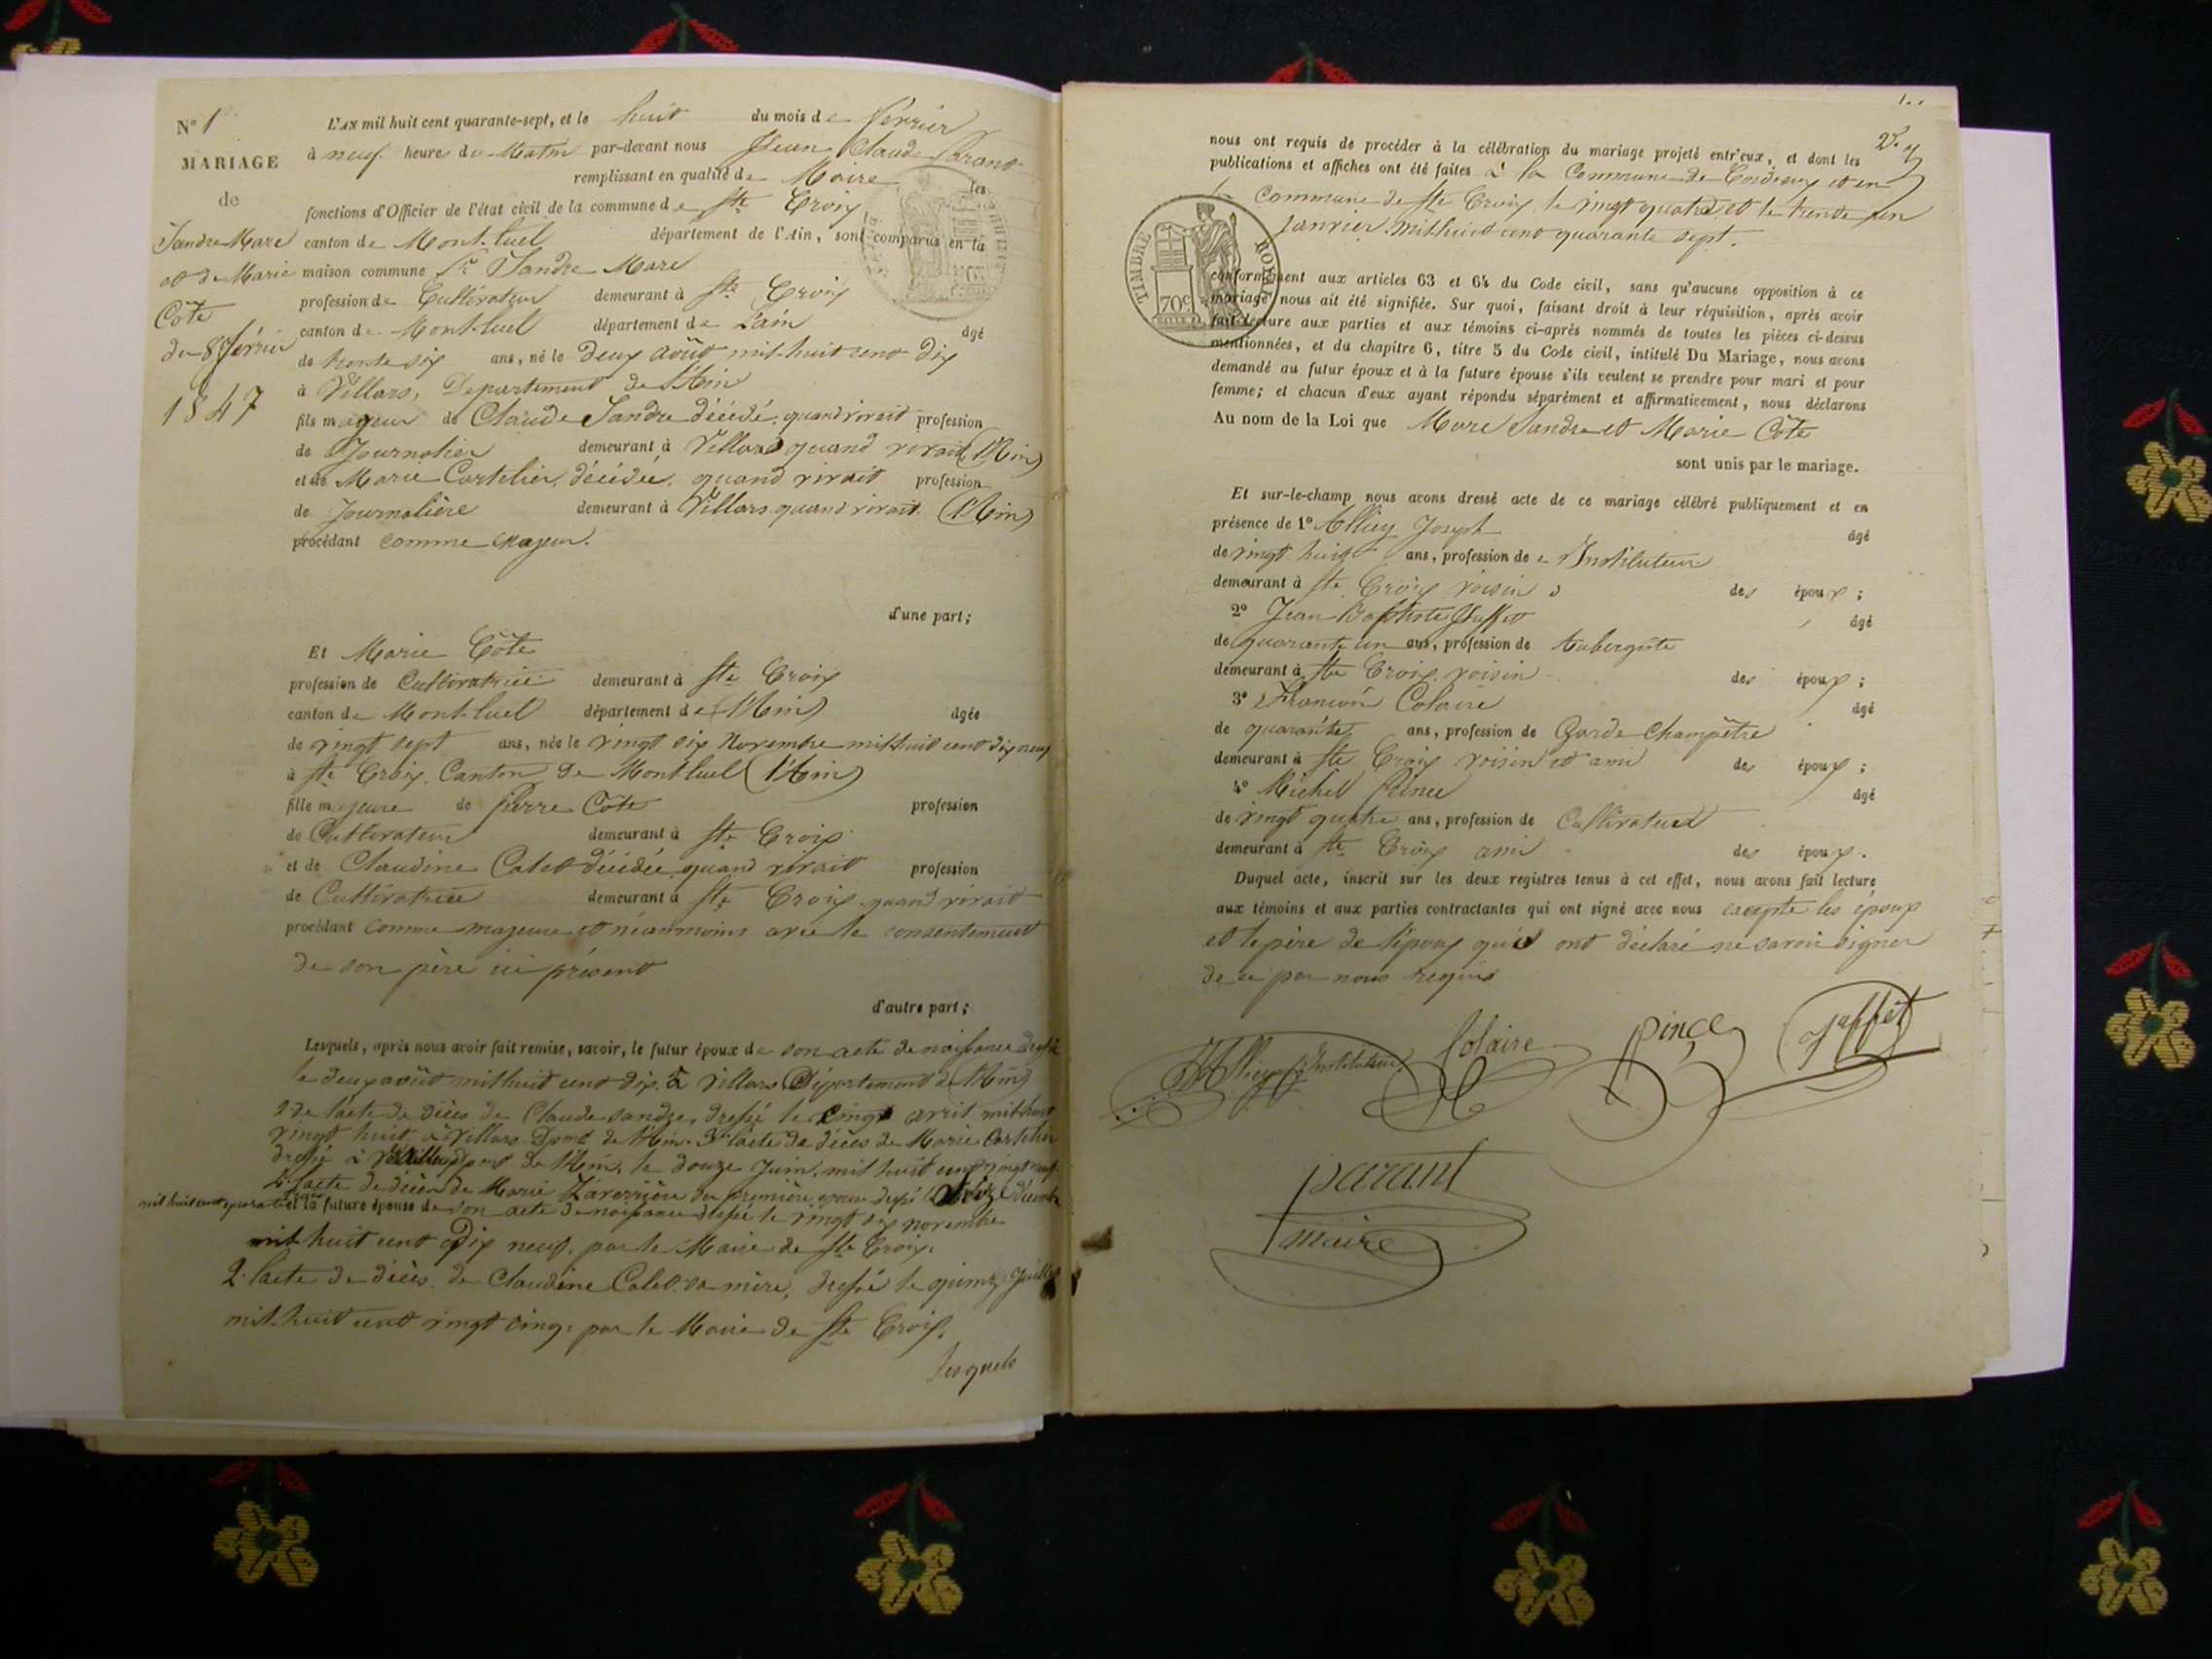 N° 1
MARIAGE
de
Sandre Marc
et de Marie
Côte
du 8 février
1847
L'AN mil huit cent quarante-sept, et le huit du mois de février
à neuf heure du Matin par-devant nous Jean Claude Parant
remplissant en qualité de Maire les
fonctions d'Officier de l'état civil de la commune de Ste Croix
canton de Mont-luel département de l'Ain, sont comparus en la
maison commune Sr Sandre Marc
profession de Cultivateur demeurant à Ste Croix
canton de Mont-luel département de L'ain âgé
de trente six ans, né le deux août mil-huit cent dix
à Villars, Departement de l'Ain
fils majeur de Claude Sandre décédé, quand vivait profession
de Journalier demeurant à Villars quand vivait (l'Ain)
et de Marie Cartelier, décédée, quand vivait profession
de Journalière demeurant à Villars quand vivait (l'Ain)
procédant comme majeur.
d'une part;
Et Marie Côte
profession de Cultivatrice demeurant à Ste Croix
canton de Mont-luel département de (l'Ain) âgée
de vingt sept ans, née le vingt six Novembre mil huit cent dix neuf
à Ste Croix, Canton de Montluel (l'Ain)
fille majeure de pierre Côte profession
de Cultivateur demeurant à Ste Croix
et de Claudine Calet décédée quand vivait profession
de Cultivatrice demeurant à Ste Croix quand vivait
procédant comme majeure et néanmoins avec le consentement
de son père ici présent
d'autre part;
Lesquels, après nous avoir fait remise, savoir, le futur époux de son acte de naissance dressé
le deux août mil huit cent dix à Villars (Département de l'Ain)
2 de l'acte de décès de Claude Sandre, dressé le avril mil huit
vingt huit à Villars Dpmt de l'Ain. 3° l'acte de décès de Marie Cartelier
dressé à Villars dpmt de l'Ain, le douze Juin, mil huit cent vingt neuf
4° l'acte de décès de Marie sa première épouse dressé le décembre
mil huit cent et la future épouse de son acte de naissance dressé le vingt six novembre
mil huit cent Dix neuf, par le Maire de Ste Croix.
2. l'acte de décès de Claudine Calet sa mère, dressé le quinze Juillet
mil-huit cent vingt cinq, par le Maire de Ste Croix.
lesquels
nous ont requis de procéder à la célébration du mariage projeté entr'eux, et dont les
publications et affiches ont été faites à la Commune de Cordieux et en
Commune de Ste Croix le vingt quatre et le trente un
janvier mil huit cent quarante sept.
TIMBRE ROYAL
70c
conformément aux articles 63 et 64 du Code civil, sans qu'aucune opposition à ce
mariage nous ait été signifiée. Sur quoi, faisant droit à leur réquisition, après avoir
fait lecture aux parties et aux témoins ci-après nommés de toutes les pièces ci-dessus
mentionnées, et du chapitre 6, titre 5 du Code civil, intitulé Du Mariage, nous avons
demandé au futur époux et à la future épouse s'ils veulent se prendre pour mari et pour
femme; et chacun d'eux ayant répondu séparément et affirmativement, nous déclarons
Au nom de la Loi que Marc Sandre et Marie Côte
sont unis par le mariage.
Et sur-le-champ nous avons dressé acte de ce mariage célébré publiquement et en
présence de 1° Joseph âgé
de vingt huit ans, profession de Instituteur
demeurant à Ste Croix voisin des époux;
2° Jean-Baptiste Juffet âgé
de quarante un ans, profession de Aubergiste
demeurant à Ste Croix voisin des époux;
3° François Colaire âgé
de quarante ans, profession de Garde Champêtre
demeurant à Ste Croix voisin et ami des époux;
4° Michel Pince âgé
de vingt quatre ans, profession de Cultivateur
demeurant à Ste Croix ami des époux.
Duquel acte, inscrit sur les deux registres tenus à cet effet, nous avons fait lecture
aux témoins et aux parties contractantes qui ont signé avec nous excepté les époux
et le père de l'époux qui ont déclaré ne savoir signer
de ce par nous requis
Instituteur Colaire pince Juffet
parant
maire